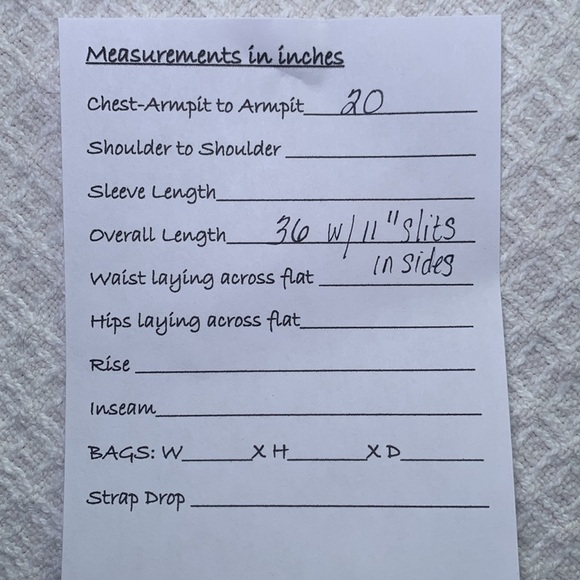 Measurements in inches
Chest-Armpit to Armpit 20
Shoulder to Shoulder
Sleeve Length
Overall Length 36 w/ 11" slits
in sides
Waist laying across flat
Hips laying across flat
Rise
Inseam
BAGS: W X H X D
Strap Drop